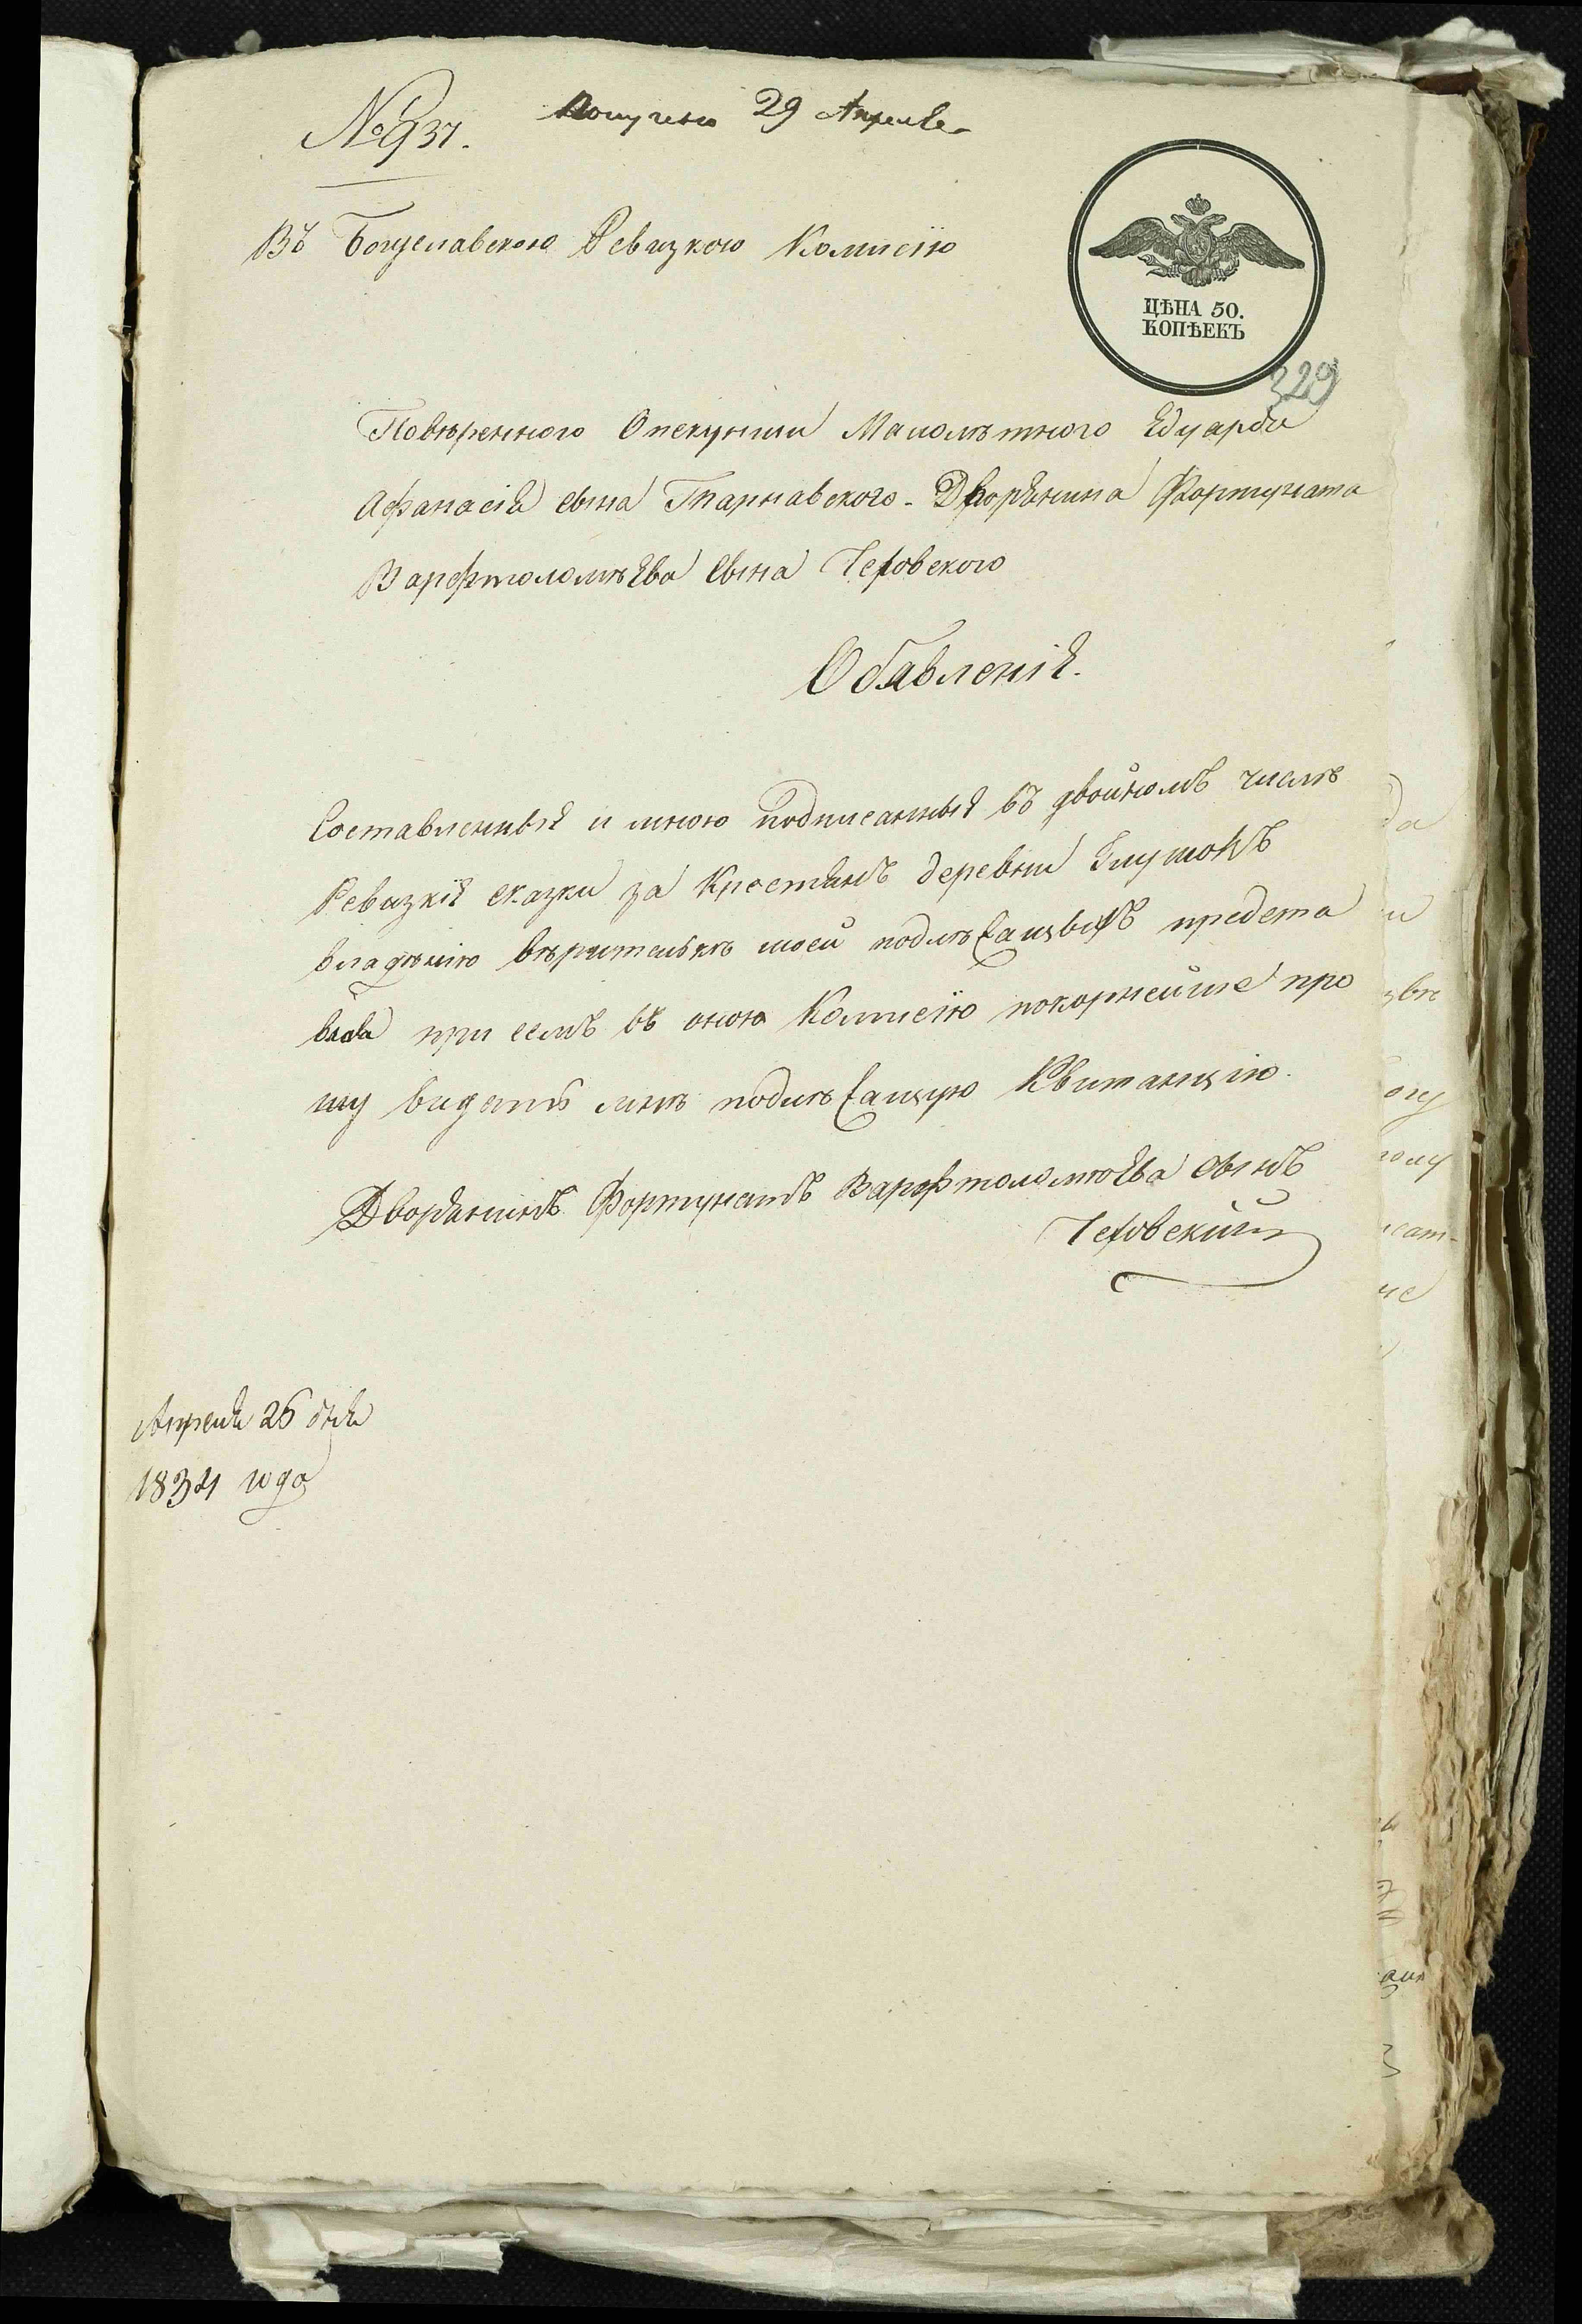 № 937.
Получено 29 Апреля
Въ Богуславскою Ревизкою Комисїю
ЦѢНА 50.
КОПѢЕКЪ
329
Повѣренного Опекунши Малолѣтного Едуарда
Афанасія сына Тарнавского - Дворянина Фортуната
Варфтоломѣева сына Чеховского
Обявленіе.
Составленныя и мною подписанныя въ двойномъ числѣ
Ревизкіе сказки за Крестянъ деревни
владѣнію вѣрительнѣ моей подлѣжащыхъ предста
вляя при семъ въ оною Комисїю покорнейше про
шу видать мнѣ подлѣжащую Квитанцію.
Дворянинъ Фортунатъ Варфтоломѣева сынъ
Чеховский
Апреля 26 дня
1834 года